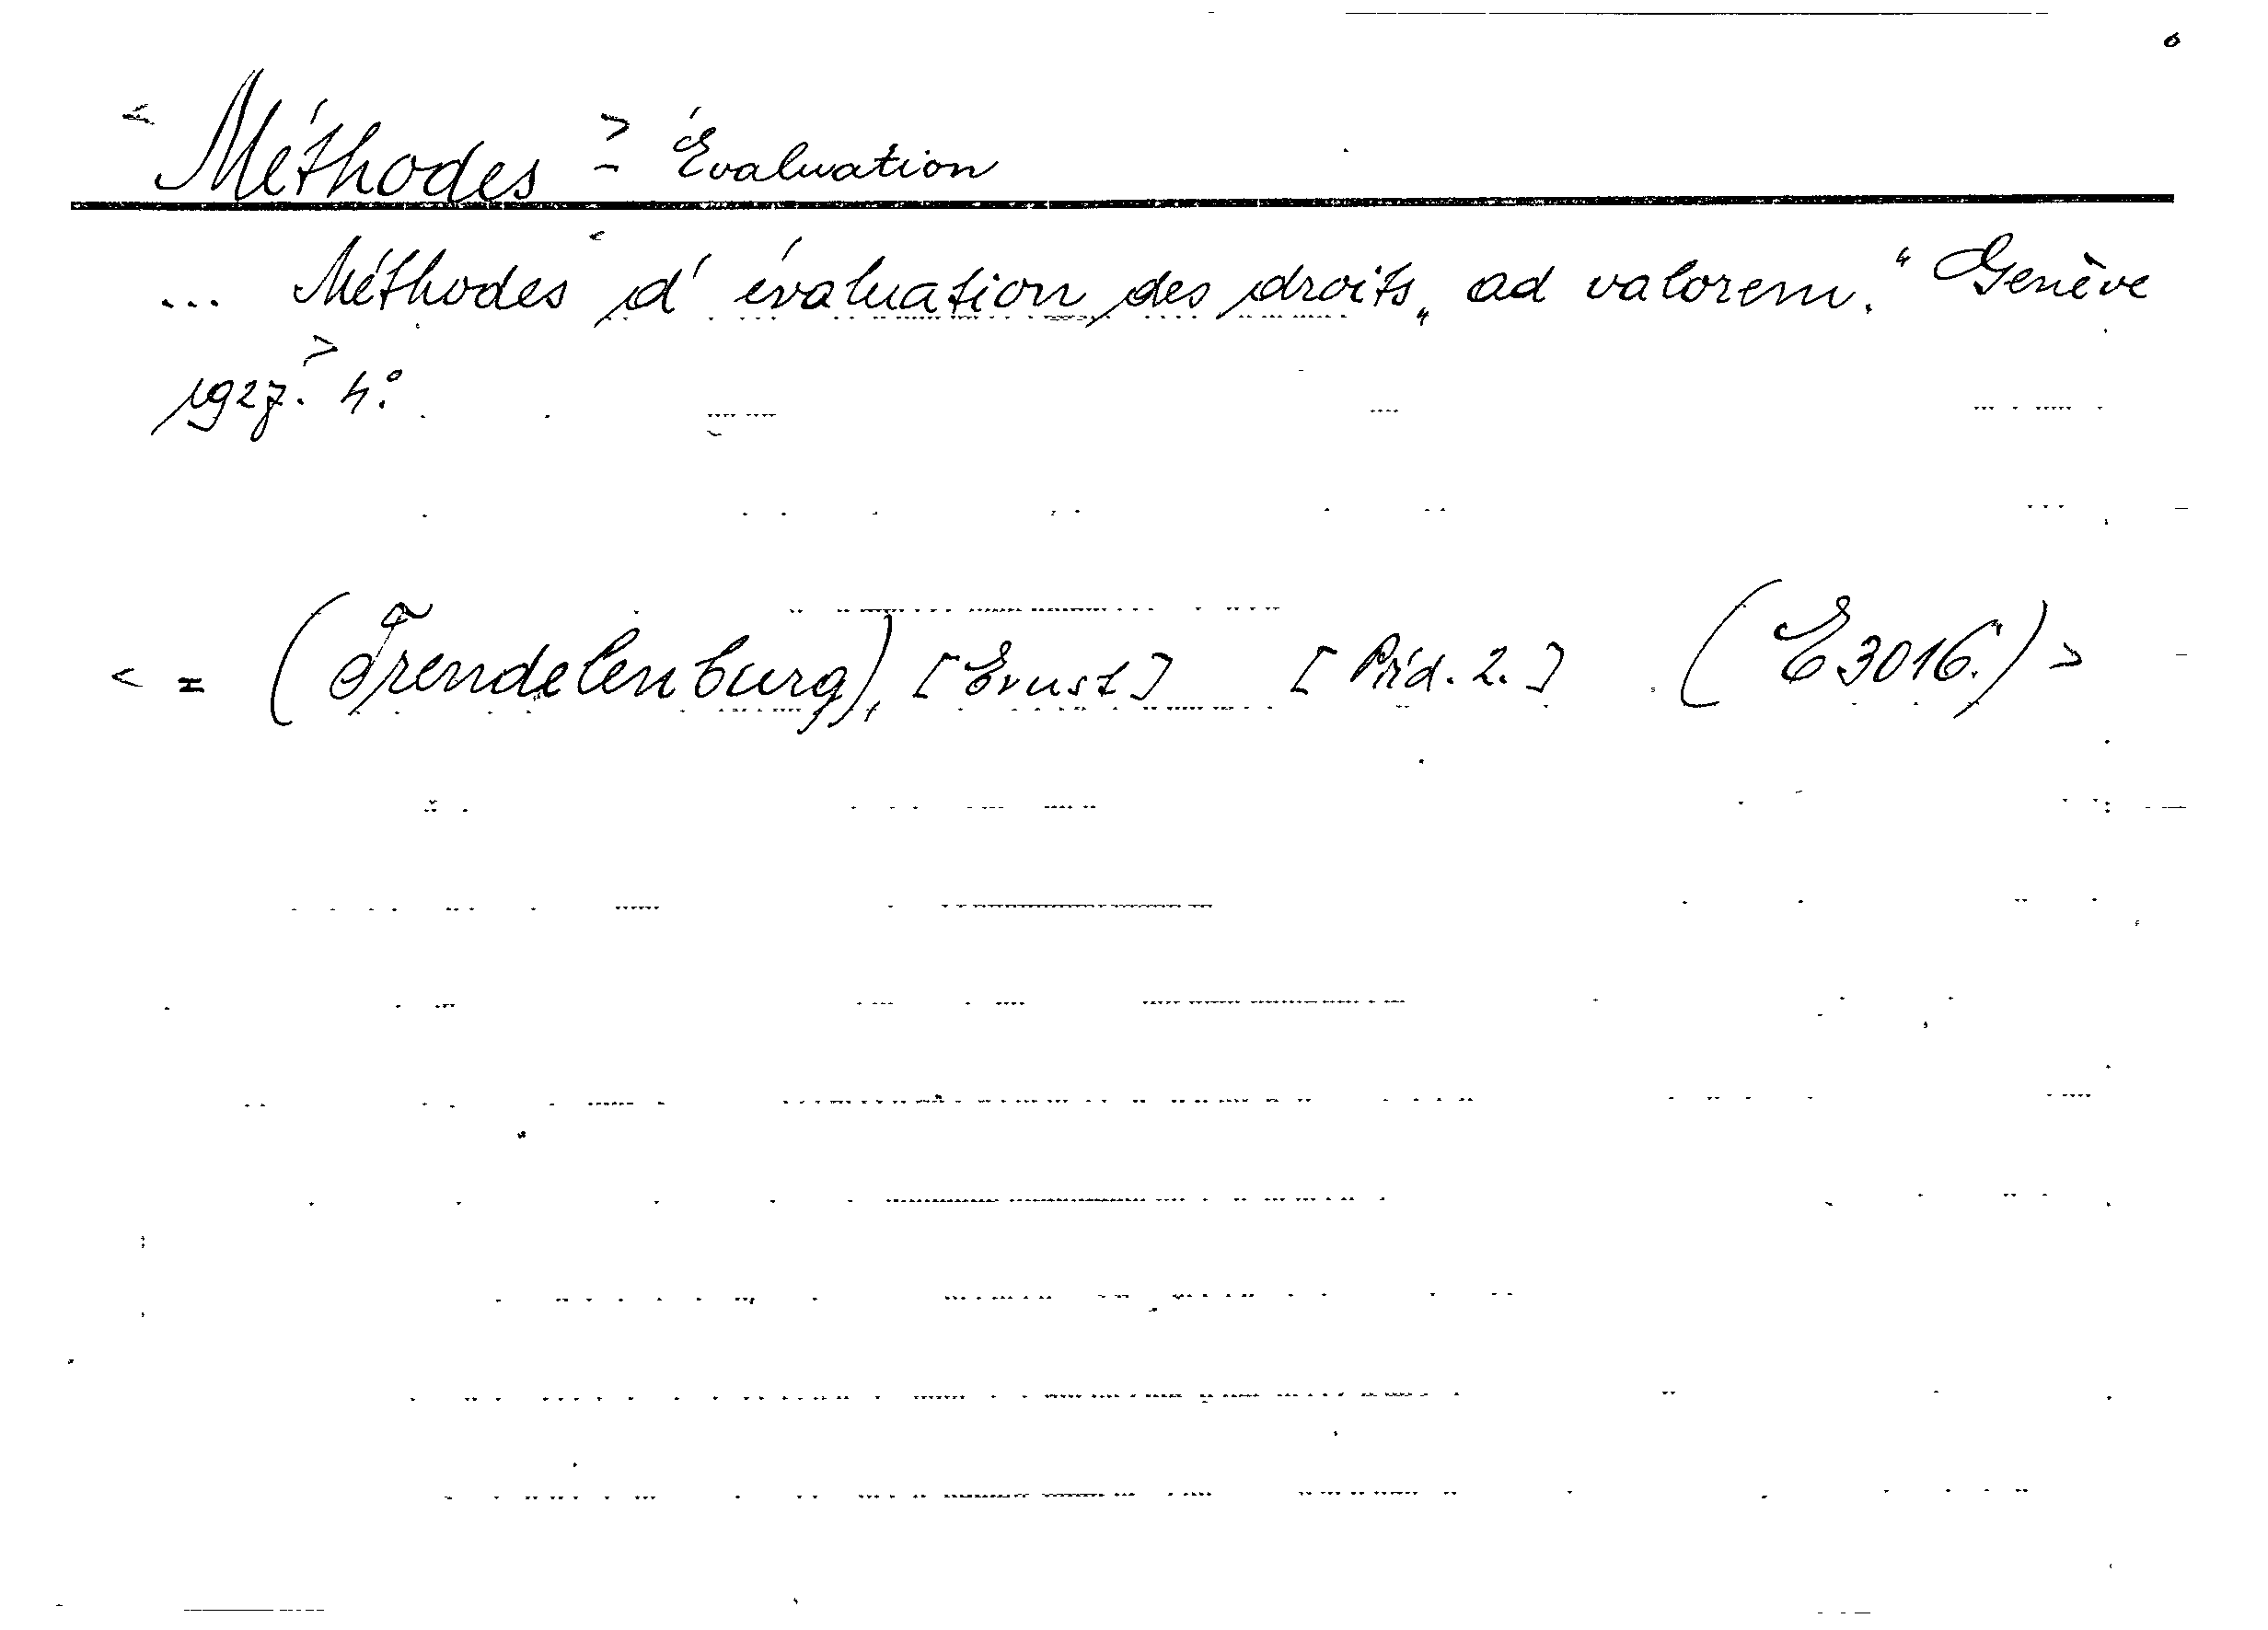 < Méthodes > = Évaluation
... < Méthodes d'évaluation des droits „ad valorem.“ Genève
1927. > 4°.
< = (Trendelenburg), [Ernst] [Präd. 2.] (E3016.) >